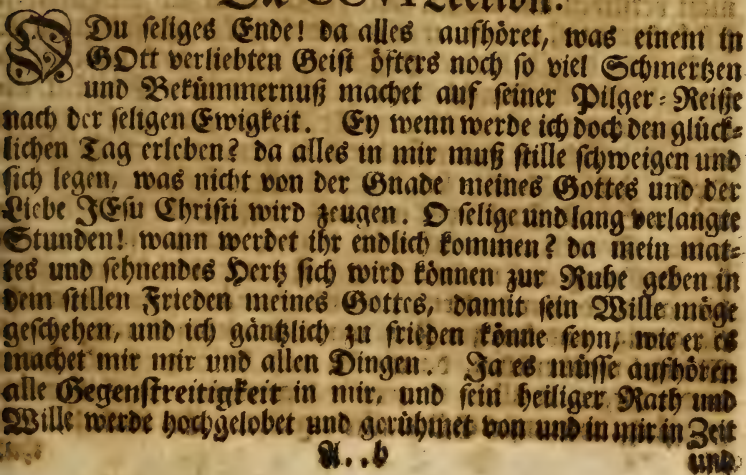 Lection.
O Du seliges Ende! da alles aufhöret, was einem in
GOtt verliebten Geist öfters noch so viel Schmertzen
und Bekümmernuß machet auf seiner Pilger-Reiße
nach der seligen Ewigkeit. Ey wenn werde ich doch den glück-
lichen Tag erleben? da alles in mir muß stille schweigen und
sich legen, was nicht von der Gnade meines Gottes und der
Liebe JEsu Christi wird zeugen. O selige und lang verlangte
Stunden! wann werdet ihr endlich kommen? da mein mat-
tes und sehnendes Hertz sich wird können zur Ruhe geben in
dem stillen Frieden meines Gottes, damit sein Wille möge
geschehen, und ich gäntzlich zu frieden könne seyn, wie er es
machet mir mir und allen Dingen. Ja es müsse aufhören
alle Gegenstreitigkeit in mir, und sein heiliger Rath und
Wille werde hochgelobet und gerühmet von und in mir in Zeit
A..b und